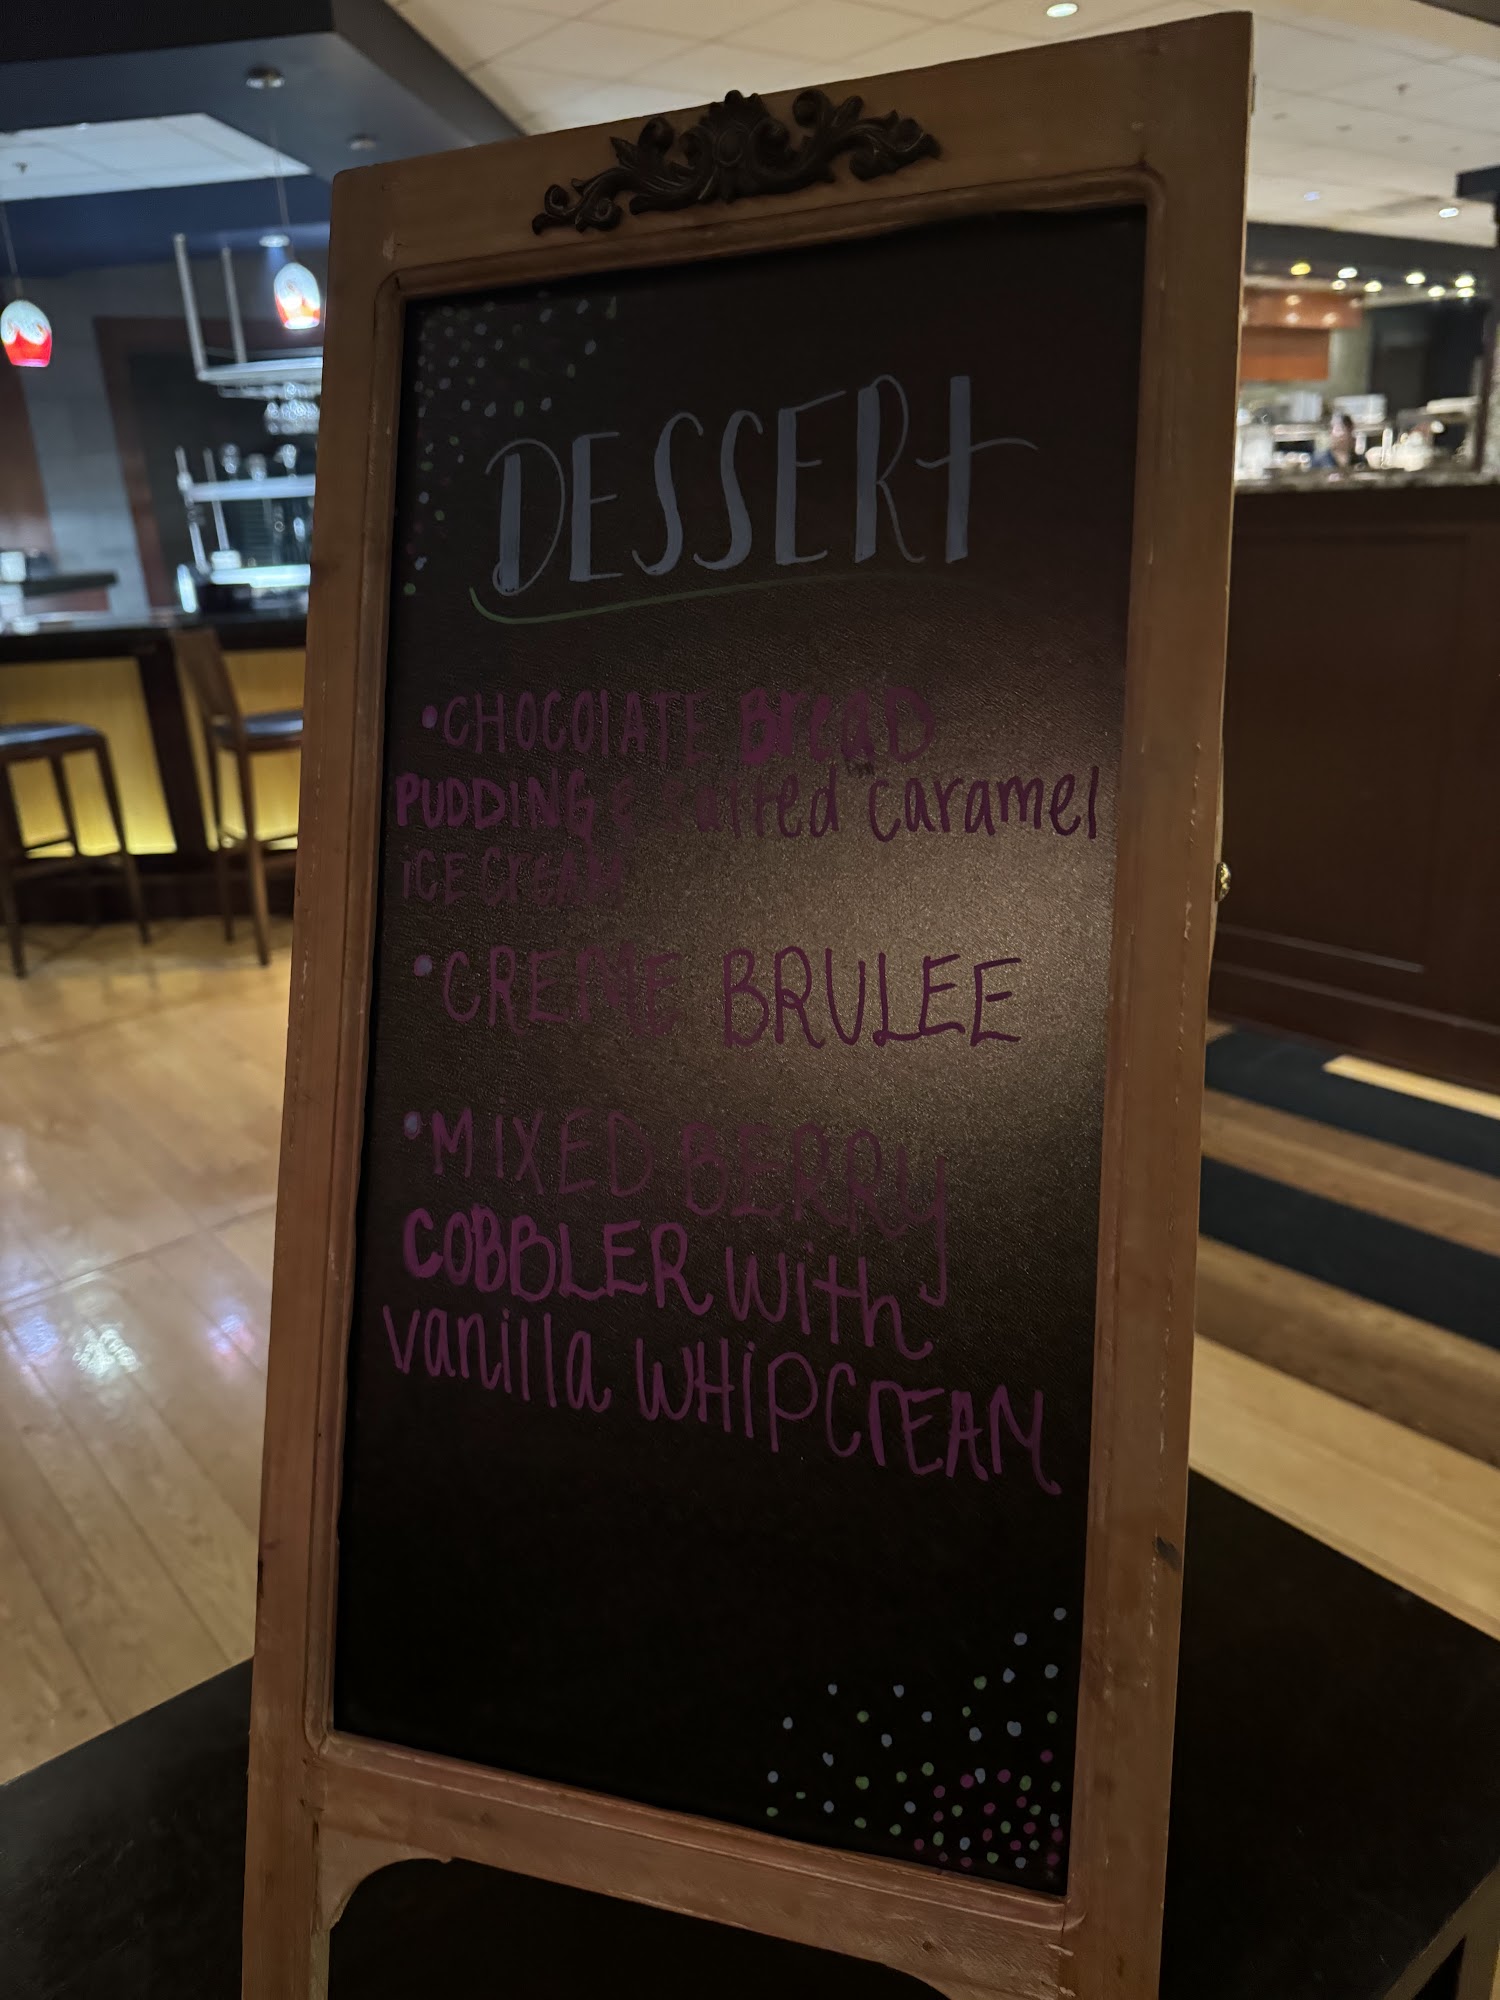 DESSERT
•CHOCOlATE BreaD
PUDDING & Salted caramel
iCE CREAM
•CREME BRULEE
•MiXED BERRY
COBBLER with
vanilla WHiPCrEAM